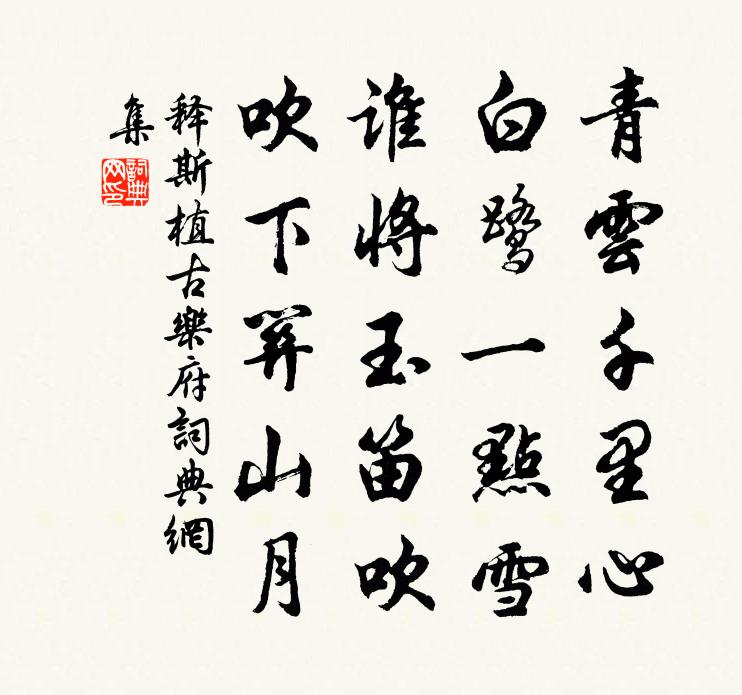 青雲千里心
白鷺一點雪
誰將玉笛吹
吹下關山月
释斯植古樂府詞典網
集
詞典
网印